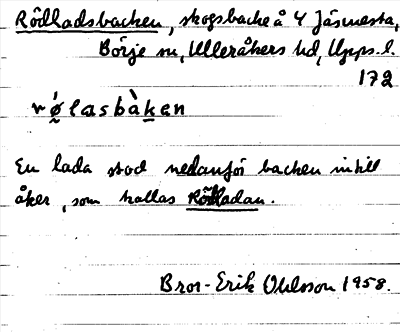 Rödladsbacken, skogsbacke å 4 Jäsmesta,
Börje sn, Ulleråkers hd, Upps. l.
172
rø̀lasbàken
En lada stod nedanför backen intill
åker, som kallas Rödladan.
Bror-Erik Ohlsson 1958.